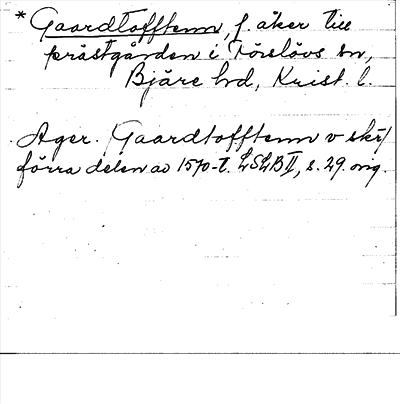 * Gaardtofftenn, f. åker till
prästgården i Förslövs sn,
Bjäre hd, Krist. l.
Ager. /Gaardtofftenn v skr/
förra delen av 1570-t. LSLB II, s. 29. orig.